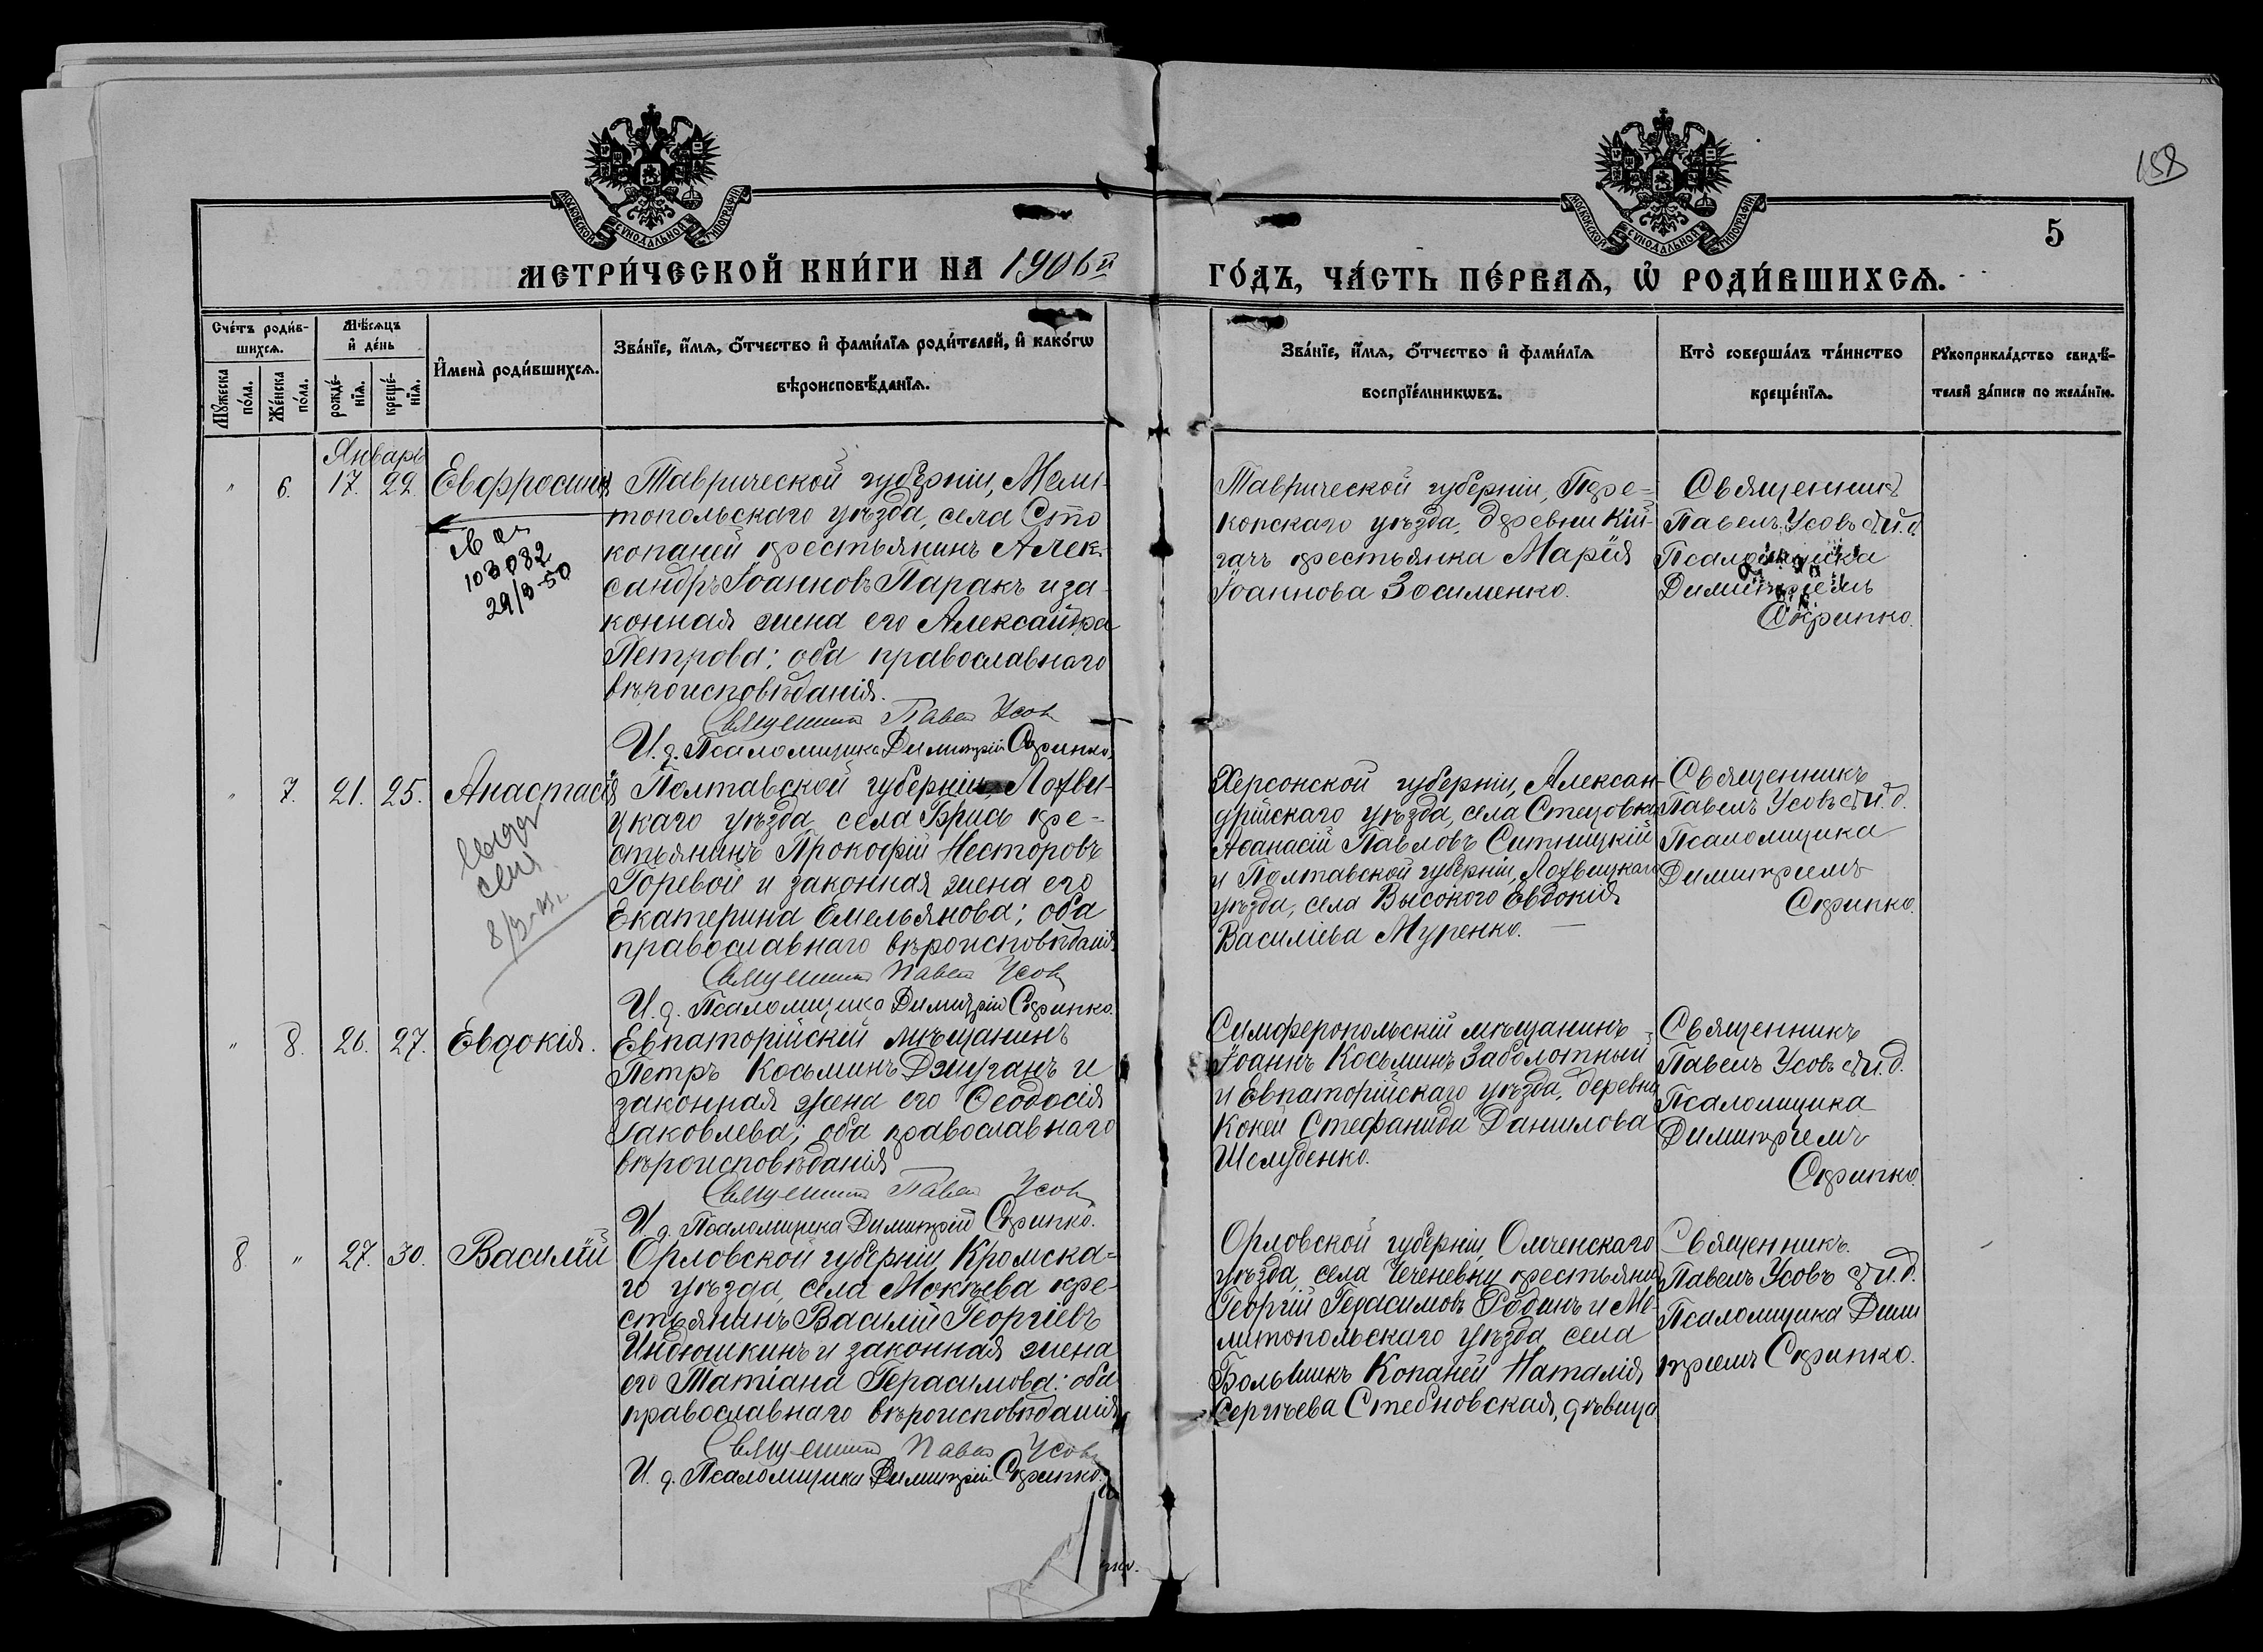 158
5
МОСКОВСКОЙ СѴНОДАЛЬНОЙ ТИПОГРАФІИ
МОСКОВСКОЙ СѴНОДАЛЬНОЙ ТИПОГРАФІИ
МЕТРИ́ЧЕСКОЙ КНИ́ГИ НА 1906й
ГО́ДЪ, ЧА́СТЬ ПЕ́РВАѦ, Ѽ РОДИ́ВШИХСѦ.
Сче́тъ роди́в-
шихсѧ.
Мꙋ́жеска по́ла.
Же́нска по́ла.
Мѣ́сѧцъ
и҆ де́нь
рожде́-
нїѧ.
креще́-
нїѧ.
И҆мена̀ роди́вшихсѧ.
Зва́нїе, и҆́мѧ, ѻ҆́тчество и҆ фами́лїѧ роди́телей, и҆ како́гѡ
вѣроисповѣ́данїѧ.
Зва́нїе, и҆́мѧ, ѻ҆́тчество и҆ фами́лїѧ
воспрїе́мникѡвъ.
Кто̀ соверша́лъ та́инство
креще́нїѧ.
Рꙋкоприкла́дство свидѣ́-
телей за́писи по жела́нїю.
Январь
" 6. 17. 22. Евфросинія
103082
29/3-50
Таврической губерніи, Мели-
топольскаго уѣзда, села Сто
копаней крестьянинъ Алек-
сандръ Іоанновъ Паракъ и за-
конная жена его Александра
Петрова; оба православнаго
вѣроисповѣданія.
Священникъ Павелъ Усовъ
И. д. Псаломщика Димитрій Скрипко.
Таврической губерніи, Пере-
копскаго уѣзда, деревни Кій-
гачъ крестьянка Марія
Іоаннова Зосименко.
Священникъ
Павелъ Усовъ съ и. д.
Псаломщика
Димитріемъ
Скрипко.
" 7. 21. 25. Анастасія
Полтавской губерніи, Лохви-
цкаго уѣзда, села Брись кре-
стьянинъ Прокофій Несторовъ
Горевой и законная жена его
Екатерина Емельянова; оба
православнаго вѣроисповѣданія
Священникъ Павелъ Усовъ
И. д. Псаломщика Димитрій Скрипко.
Херсонской губерніи, Алексан-
дрійскаго уѣзда, села Стецовки
Аѳанасій Павловъ Ситницкій
и Полтавской губерніи, Лохвицкаго
уѣзда, села Высокого Евдокія
Василіева Муренко.
Священникъ
Павелъ Усовъ съ и. д.
Псаломщика
Димитріемъ
Скрипко.
" 8. 26. 27. Евдокія.
Евпаторійскій мѣщанинъ
Петръ Косьминъ Джуганъ и
законная жена его Ѳеодосія
Іаковлева; оба православнаго
вѣроисповѣданія
Священникъ Павелъ Усовъ
И. д. Псаломщика Димитрій Скрипко.
Симферопольскій мѣщанинъ
Іоаннъ Косьминъ Заболотный
и Евпаторійскаго уѣзда, деревни
Коней Стефанида Данилова
Шелуденко.
Священникъ
Павелъ Усовъ съ и. д.
Псаломщика
Димитріемъ
Скрипко.
8. " 27. 30. Василій
Орловской губерніи, Кромска-
го уѣзда, села Мокѣева кре-
стьянинъ Василій Георгіевъ
Индюшкинъ и законная жена
его Татіана Герасимова; оба
православнаго вѣроисповѣданія
Священникъ Павелъ Усовъ
И. д. Псаломщика Димитрій Скрипко.
Орловской губерніи, Омченскаго
уѣзда, села Чеченевки крестьянинъ
Георгій Герасимовъ Родинъ и Ме-
литопольскаго уѣзда, села
Большихъ Копаней Наталія
Сергѣева Стебновская, дѣвица
Священникъ
Павелъ Усовъ съ и. д.
Псаломщика Дими
тріемъ Скрипко.